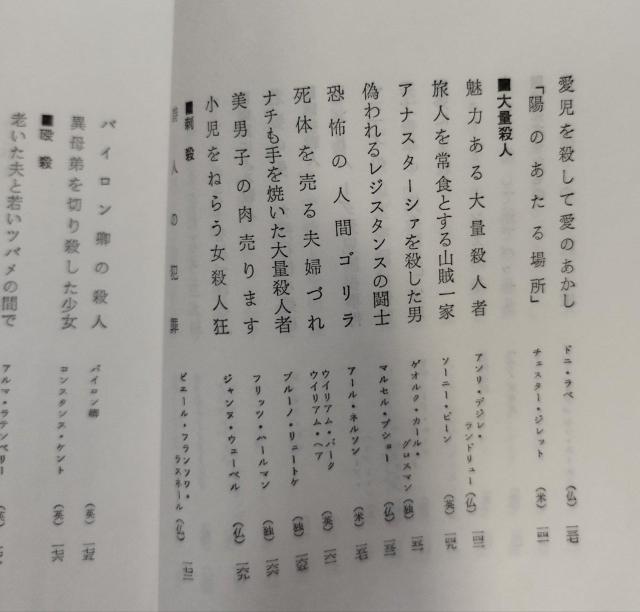 愛児を殺して愛のあかし ドニ・ラベ (仏) 一三七
「陽のあたる場所」 チェスター・ジレット (米) 一四一
■大量殺人
魅力ある大量殺人者 アンリ・デジレ・ランドリュー (仏) 一四二
旅人を常食とする山賊一家 ソーニー・ビーン (英) 一四九
アナスターシァを殺した男 ゲオルク・カール・グロスマン (独) 一五一
偽われるレジスタンスの闘士 マルセル・プショー (仏) 一五三
恐怖の人間ゴリラ アール・ネルソン (米) 一五七
死体を売る夫婦づれ ウイリアム・バーク ウイリアム・ヘア (英) 一六一
ナチも手を焼いた大量殺人者 ブルーノ・リュトケ (独)
美男子の肉売ります フリッツ・ハールマン (独) 一六六
小児をねらう女殺人狂 ジャンヌ・ウェーベル (仏) 一六九
■刺殺
詩人の犯罪 ピエール・フランソワ・ラスネール (仏) 一七三
バイロン卿の殺人 バイロン卿 (英) 一七五
異母弟を切り殺した少女 コンスタンス・ケント (英) 一七六
■殴殺
老いた夫と若いツバメの間で アルマ・ラテンベリー (英)